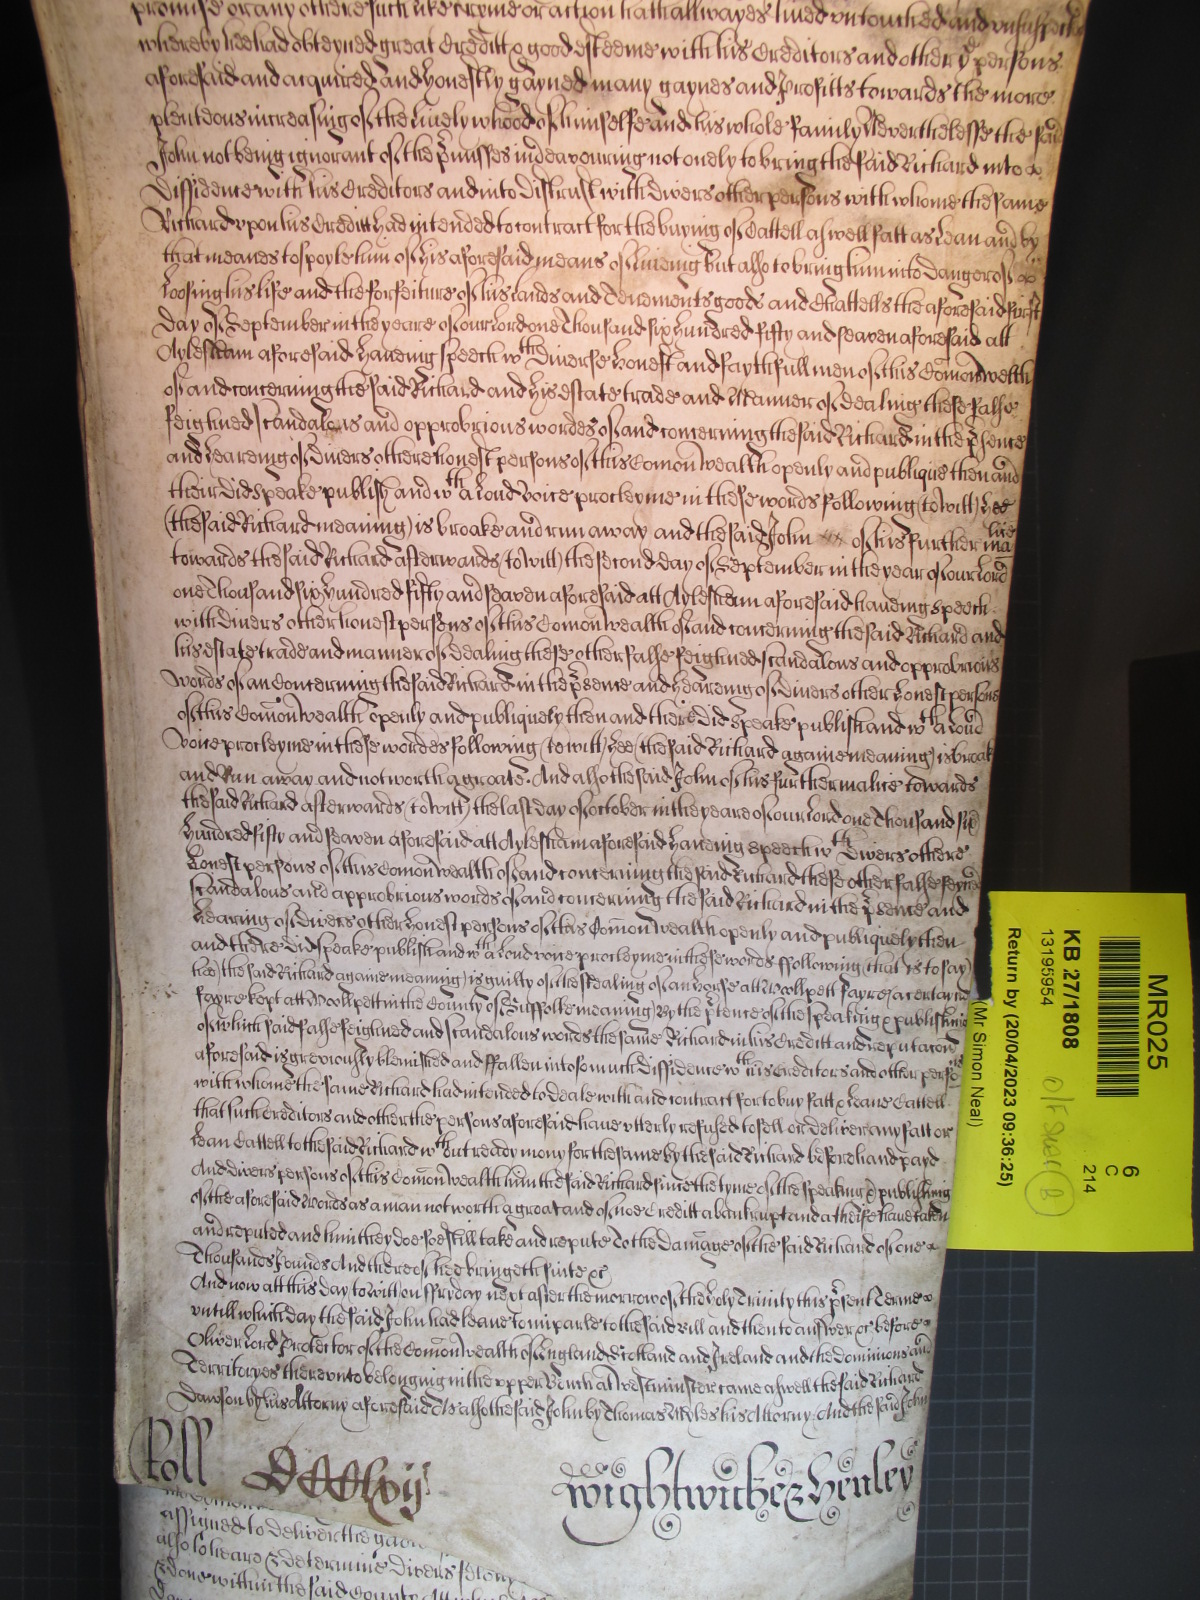 promise or any othere such like cryme or action hath allwayes lived untouched and unsuspected
whereby hee had obteyned great Creditt & good esteeme with his Creditors and other ye persons
aforesaid and acquired and honestly gayned many gaynes and Profitts towards the more
plenteous increasing of the lively whood of himselfe and his whole family Neverthelesse the said
John not being ignorant of the p'misses indeavouring not onely to bring the said Richard into
Diffidence with his Creditors and into Distrust with Divers other persons with whome the same
Richard upon his Creditt had intended to contract for the buying of Cattell as well fatt as Lean and by
that meanes to spoyle him of his aforesaid means of liveing but also to bring him into danger of
Loosing his life and the forfeiture of his Lands and Tenements goods and Chattells the aforesaid first
day of September in the yeare of our Lord one Thousand six hundred fifty and seaven aforesaid att
Aylesham aforesaid haveing speech wth Diverse honest and faythfull men of this Comonwealth
of and concerning the said Richard and his estate trade and Manner of dealing these false
feighned scandalous and opprobrious wordes of and concerning the said Richard in the p'sence
and heareing of Divers othere honest persons of this Comon wealth openly and publique then and
their did speake publish and wth a loud voice procleyme in these words following (to witt) hee
(the said Richard meaning) is broake and run away and the said John of his further malice
towards the said Richard afterwards (to witt) the second day of September in the year of our Lord
one Thousand six hundred fifty and seaven aforesaid att Aylesham aforesaid haveing speech
with Divers other honest persons of this Comon wealth of and concerning the said Richard and
his estate trade and manner of dealing these other false feighned scandalous and opprobrious
words of an Concerning the said Richard in the p'sence and heareing of Divers other honest persons
of this Comon wealth openly and publiquely then and there did speake publish and wth a loud
voice procleyme in these wordes following (to witt) hee (the said Richard againe meaning) is broak
and Run away and not worth a groate. And also the said John of his further malice towards
the said Richard afterwards (to witt) the last day of October in the yeare of our Lord one Thousand six
hundred fifty and seaven aforesaid att Aylesham aforesaid haveing speech wth Divers othere
honest persons of this Comon wealth of and concerning the said Richard these other false feyned
scandalous and approbrious words of and concerning the said Richard in the p'sence and
hearing of Divers other honest persons of this Comon wealth openly and publiquely then
and there did speake publish and wth a loud voice procleyme in these words ffollowing (that is to say)
hee (the said Richard againe meaning) is guilty of the stealing of an horse att Woollpett fayre (a certayne
fayre kept att Woollpett in the County of Suffolke meaning) By the p'tence of the speaking & publishing
of which said false feighned and scandalous words the same Richard in his Creditt and reputacon
aforesaid is greviously blemished and ffallen into so much Diffidence wth his Creditors and other persons
with whome the same Richard had intended to deale with and contract for to buy fatt & leane Cattell
that such creditors and other the persons aforesaid have utterly refused to sell or deliver any fatt or
lean Cattell to the said Richard wthout ready mony for the same by the said Richard beforehand payd
And divers persons of this Comon wealth him the said Richard since the tyme of the speaking & publishing
of the aforesaid Words as a man not worth a groat and of noe Creditt a banckrupt and a theife have taken
and reputed and him they doe soe still take and repute To the Damage of the said Richard of one
Thousand Pounds And thereof hee bringeth suite &c
And now att this day to witt on ffryday next after the morrow of the holy Trinity this p'sent Terme
untill which day the said John had leave to imparle to the said bill and then to answer &c before
Oliver Lord Protector of the Comon wealth of England Scotland and Ireland and the Dominions and
Territoryes thereunto belonging in the upper Bench at Westminster came as well the said Richard
Dawson by his Attorny aforesaid As also the said John by Thomas Myles his Attorny And the said John
Roll DCCClxij
Wightwicke & Henley
assigned to deliver the gaole
also to heare & determine Divers felony
& done within the said County
MR025
KB 27/1808
13195954
6
C
214
O/F Sheer (B)
Return by (20/04/2023 09:36:25)
(Mr Simon Neal)